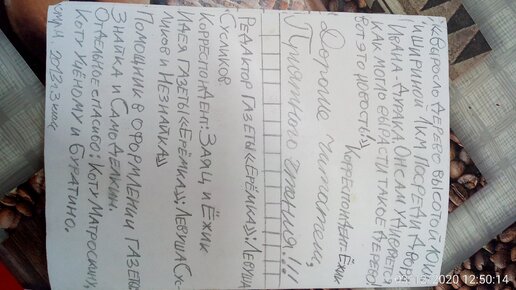 «Выросло дерево высотой 10км
и шириной 1км посреди двора
Ивана-Дурака. Он сам
Как могло вырасти такое дерево!
Вот это новость!»
Корреспондент: Ёжик
Дорогие читатели,
Приятного чтения!!!
Редактор газеты «Ерёмка»: Левуша
Сусликов
Корреспондент: Заяц и Ёжик
Идея газеты «Ерёмка»: Левуша Сус-
ликов и Незнайка»
Помощник в оформлении газеты
Знайка и Самоделкин.
Отдельное спасибо: Коту Матроскину,
Коту Учёному и Буратино.
3 класс
2020 12:50:14